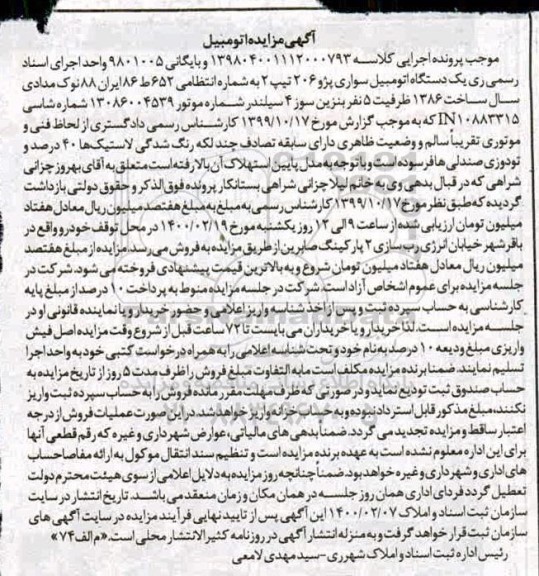 آگهی مزایده اتومبیل
موجب پرونده اجرایی کلاسه ۱۳۹۸۰۴۰۰۱۱۱۲۰۰۰۷۹۳ و بایگانی ۹۸۰۱۰۰۵ واحد اجرای اسناد
رسمی ری یک دستگاه اتومبیل سواری پژو ۲۰۶ تیپ ۲ به شماره انتظامی ۶۵۲ ط ۸۶ ایران ۸۸ نوک مدادی
سال ساخت ۱۳۸۶ ظرفیت ۵ نفر بنزین سوز ۴ سیلندر شماره موتور ۱۳۰۸۶۰۰۴۵۳۹ شماره شاسی
IN۱۰۸۸۳۳۱۵ که به موجب گزارش مورخ ۱۳۹۹/۱۰/۱۷ کارشناس رسمی دادگستری از لحاظ فنی و
موتوری تقریباً سالم و وضعیت ظاهری دارای سابقه تصادف چند لکه رنگ شدگی لاستیک‌ها ۴۰ درصد و
تودوزی صندلی ها فرسوده است و باتوجه به مدل پایین استهلاک آن بالا رفته است متعلق به آقای بهروز چزانی
شراهی که در قبال بدهی وی به خانم لیلا چزانی شراهی بستانکار پرونده فوق الذکر و حقوق دولتی بازداشت
گردیده که طبق نظر مورخ ۱۳۹۹/۱۰/۱۷ کارشناس رسمی به مبلغ به مبلغ هفتصد میلیون ریال معادل هفتاد
میلیون تومان ارزیابی شده از ساعت ۹ الی ۱۲ روز یکشنبه مورخ ۱۴۰۰/۰۲/۱۹ در محل توقف خودرو واقع در
باقرشهر خیابان انرژی رب سازی ۲ پارکینگ صابرین از طریق مزایده به فروش می رسد. مزایده از مبلغ هفتصد
میلیون ریال معادل هفتاد میلیون تومان شروع و به بالاترین قیمت پیشنهادی فروخته می شود. شرکت در
جلسه مزایده برای عموم اشخاص آزاد است. شرکت در جلسه مزایده منوط به پرداخت ۱۰ درصد از مبلغ پایه
کارشناسی به حساب سپرده ثبت و پس از اخذ شناسه واریز اعلامی و حضور خریدار و یا نماینده قانونی او در
جلسه مزایده است. لذا خریدار و یا خریداران می بایست تا ۷۲ ساعت قبل از شروع وقت مزایده اصل فیش
واریزی مبلغ ودیعه ۱۰ درصد به نام خود و تحت شناسه اعلامی را به همراه درخواست کتبی خود به واحد اجرا
تسلیم نمایند. ضمنا برنده مزایده مکلف است مابه التفاوت مبلغ فروش را ظرف مدت ۵ روز از تاریخ مزایده به
حساب صندوق ثبت تودیع نماید و در صورتی که ظرف مهلت مقرر مانده فروش را به حساب سپرده ثبت واریز
نکنند، مبلغ مذکور قابل استرداد نبوده و به حساب خزانه واریز خواهد شد. در این صورت عملیات فروش از درجه
اعتبار ساقط و مزایده تجدید می گردد. ضمنا بدهی های مالیاتی، عوارض شهرداری و غیره که رقم قطعی آنها
برای این اداره معلوم نشده است به عهده برنده مزایده است و تنظیم سند انتقال موکول به ارائه مفاصاحساب
های اداری و شهرداری و غیره خواهد بود. ضمنا چنانچه روز مزایده به دلایل اعلامی از سوی هیئت محترم دولت
تعطیل گردد فردای اداری همان روز جلسه در همان مکان و زمان منعقد می باشد. تاریخ انتشار در سایت
سازمان ثبت اسناد و املاک ۱۴۰۰/۰۲/۰۷ این آگهی پس از تایید نهایی فرآیند مزایده در سایت آگهی های
سازمان ثبت قرار خواهد گرفت و به منزله انتشار آگهی در روزنامه کثیر الانتشار محلی است. «م الف ۷۴»
رئیس اداره ثبت اسناد و املاک شهرری - سید مهدی لامعی